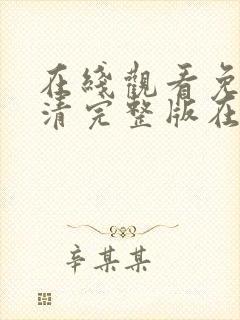 在綫觀看免
清完整版在
辛某某